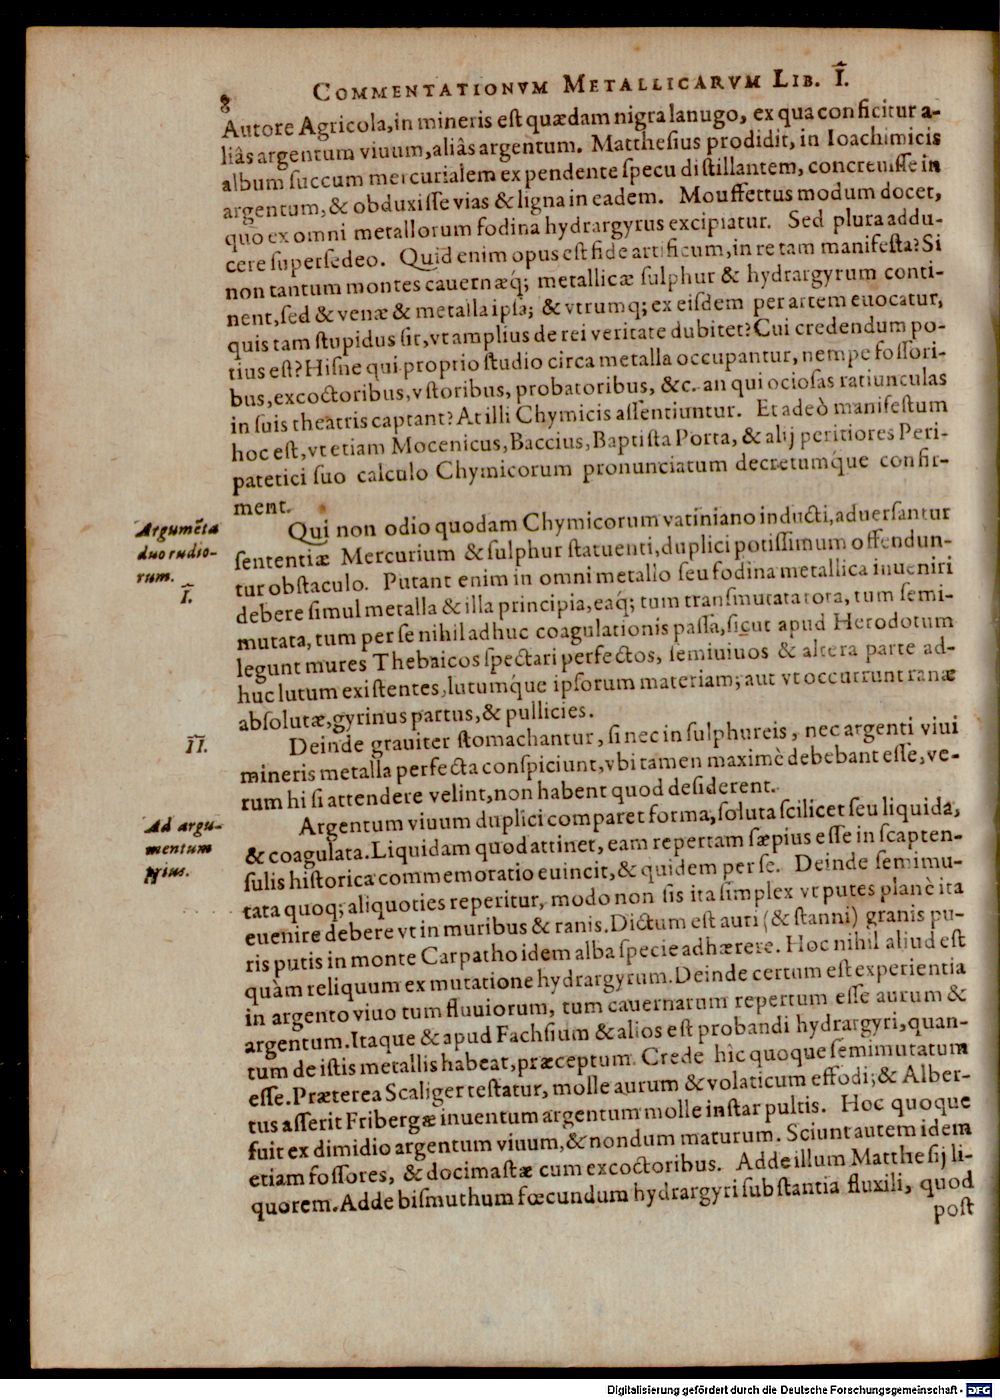 8
COMMENTATIONVM METALLICARVM LIB. I.
Autore Agricola, in mineris est quædam nigra lanugo, ex qua conficitur a-
liâs argentum viuum, aliâs argentum. Matthesius prodidit, in Ioachimicis
album succum mercurialem ex pendente specu distillantem, concreuisse in
argentum, & obduxisse vias & ligna in eadem. Mouffettus modum docet,
quo ex omni metallorum fodina hydrargyrus excipiatur. Sed plura addu-
cere supersedeo. Quid enim opus est fide artificum, in re tam manifesta? Si
non tantum montes cauernæq́; metallicæ sulphur & hydrargyrum conti-
nent, sed & venæ & metalla ipsa; & vtrumq; ex eisdem per artem euocatur,
quis tam stupidus sit, vt amplius de rei veritate dubitet? Cui credendum po-
tius est? Hisne qui proprio studio circa metalla occupantur, nempe fossori-
bus, excoctoribus, vstoribus, probatoribus, &c. an qui ociosas ratiunculas
in suis theatris captant? At illi Chymicis assentiuntur. Et adeò manifestum
hoc est, vt etiam Mocenicus, Baccius, Baptista Porta, & alij peritiores Peri-
patetici suo calculo Chymicorum pronunciatum decretumq́ue confir-
ment.
Argumẽta
duo rudio-
rum.
I.
Qui non odio quodam Chymicorum vatiniano inducti, aduersantur
sententiæ Mercurium & sulphur statuenti, duplici potissimum offendun-
tur obstaculo. Putant enim in omni metallo seu fodina metallica inueniri
debere simul metalla & illa principia, eaq́; tum transmutata tota, tum semi-
mutata, tum per se nihil adhuc coagulationis passa, sicut apud Herodotum
legunt mures Thebaicos spectari perfectos, semiuiuos & altera parte ad-
huc lutum existentes, lutumq́ue ipsorum materiam; aut vt occurrunt ranæ
absolutæ, gyrinus partus, & pullicies.
II.
Deinde grauiter stomachantur, si nec in sulphureis, nec argenti viui
mineris metalla perfecta conspiciunt, vbi tamen maximè debebant esse, ve-
rum hi si attendere velint, non habent quod desiderent.
Ad argu-
mentum
prius.
Argentum viuum duplici comparet forma, soluta scilicet seu liquida,
& coagulata. Liquidam quod attinet, eam repertam sæpius esse in scapten-
sulis historica commemoratio euincit, & quidem per se. Deinde semimu-
tata quoq; aliquoties reperitur, modo non sis ita simplex vt putes planè ita
euenire debere vt in muribus & ranis. Dictum est auri (& stanni) granis pu-
ris putis in monte Carpatho idem alba specie adhærere. Hoc nihil aliud est
quàm reliquum ex mutatione hydrargyrum. Deinde certum est experientia
in argento viuo tum fluuiorum, tum cauernarum repertum esse aurum &
argentum. Itaque & apud Fachsium & alios est probandi hydrargyri, quan-
tum de istis metallis habeat, præceptum. Crede hîc quoque semimutatum
esse. Præterea Scaliger testatur, molle aurum & volaticum effodi; & Alber-
tus asserit Fribergæ inuentum argentum molle instar pultis. Hoc quoque
fuit ex dimidio argentum viuum, & nondum maturum. Sciunt autem idem
etiam fossores, & docimastæ cum excoctoribus. Adde illum Matthesij li-
quorem. Adde bismuthum fœcundum hydrargyri substantia fluxili, quod
post
Digitalisierung gefördert durch die Deutsche Forschungsgemeinschaft - DFG